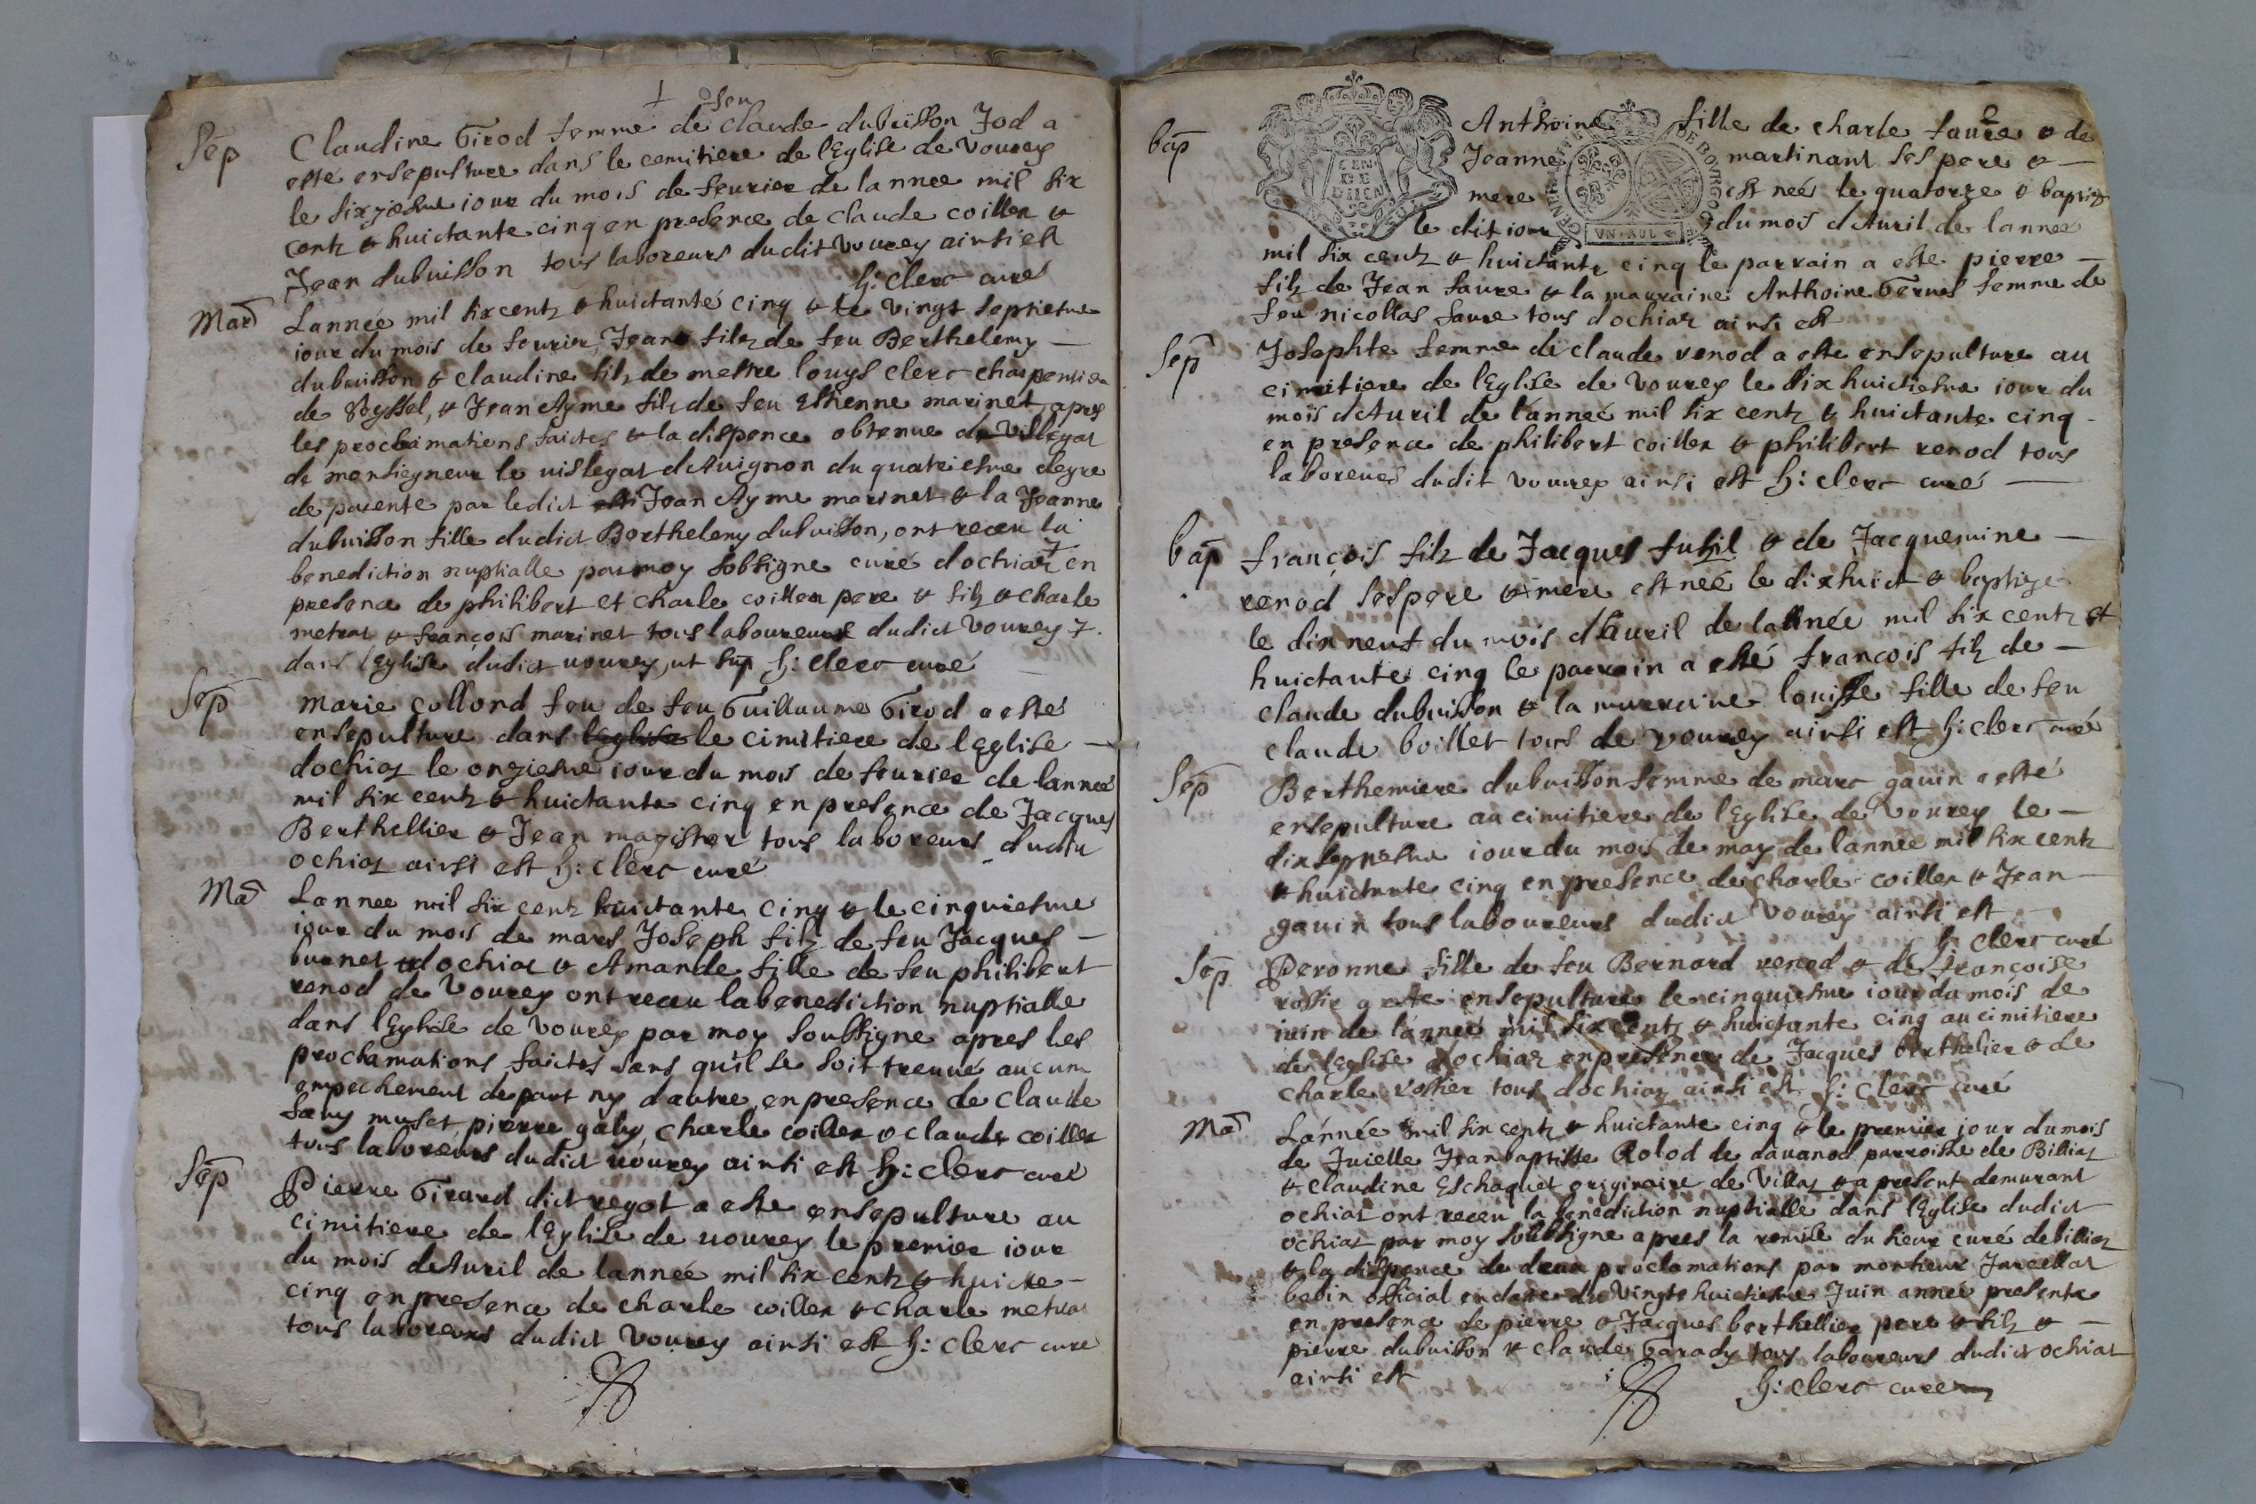 feu
Sep
Claudine Girod femme de claude dubuisson Jod a
esté ensepulture dans le cemitiere de l'Eglise de Vourey
le sixziesme iour du mois de feurier de lannee mil six
centz & huictante cinq en presence de claude coiller &
Jean dubuisson tous laboreurs dudit Vourey ainsi est
h: clerc curé
Mar
Lannée mil six centz & huictante cinq & le vingt septiesme
iour du mois de feurier Jean filz de feu Berthelemy —
dubuisson & claudine filz de mestre louys clerc charpentier
de Seyssel, & Jean Ayme filz de feu Estienne marinet apres
les proclamations faictes & la dispence obtenue de Vislegat
de monseigneur le vislegat d'Auignon du quatriesme degre
de parente par ledict Jean Ayme marinet & la Jeanne
dubuisson fille dudict Berthelemy dubuisson, ont receu la
benediction nuptialle par moy sobsigne curé d'ochiaz en
presence de philibert et charle coiller pere & filz & charle
metraz & françois marinet tous laboureurs dudict Vourey
dans l'Eglise dudict vourey, ut sup h: clerc curé
Sep
marie collond feu de feu Guillaume Girod a esté
ensepulture dans l'Eglise le cimitiere de l'Eglise —
dochiaz le onziesme iour du mois de feurier de lanneé
mil six centz & huictante cinq en presence de Jacques
Berthellier & Jean magister tous laboreurs dudit
ochiaz ainsi est h: clerc curé
Ma
Lannee mil six centz huictante cinq & le cinquiesme
iour du mois de mars Joseph filz de feu Jacques —
burnet dochiaz & Amande fille de feu philibert
renod de Vourey ont receu la benediction nuptialle
dans l'Eglise de Vourey par moy soubsigne apres les
proclamations faictes sans qu'il se soit treuué aucun
empechement de part ny dautre en presence de claude
muset, pierre galy, charle coiller & claude coiller
tous laboreurs dudict vourey ainsi est h: clerc curé
Sep
Pierre Girard dict regot a esté ensepulture au
cimitiere de l'Eglise de vourey le premier iour
du mois d'Auril de lannée mil six centz & huicte —
cinq en presence de charle coiller & charle metraz
tous laboreurs dudict Vourey ainsi est h: clerc curé
bap
Anthoine fille de charle faure & de
Jeanne martinant ses pere & —
mere est neé le quatorze & baptize
le dit iour du mois d'Auril de lannee
mil six centz & huictante cinq le parrain a esté pierre —
filz de Jean faure & la marraine Anthoine Gernes femme de
feu nicollas faure tous dochiaz ainsi est
Sep
Josephte femme de claude renod a esté ensepulture au
cimitiere de l'Eglise de Vourey le dixhuictiesme iour du
mois d'Auril de l'anneé mil six centz & huictante cinq -
en presence de philibert coiller & philibert renod tous
laboreurs dudit vourey ainsi est h: clerc curé —
bap
françois filz de Jacques fusil & de Jacquemine —
renod ses pere & mere est neé le dixhuict & baptize
le dix neuf du mois d'Auril de lannée mil six centz et
huictante cinq le parrain a esté françois filz de —
claude dubuisson & la marraine louisse fille de feu
claude boillet tous de vourey ainsi est h: clerc curé
Sep
Berthemiere dubuisson femme de marc gauin a esté
ensepulture au cimitiere de l'Eglise de Vourey le —
dixseptiesme iour du mois de may de lannee mil six centz
& huictante cinq en presence de charle coiller & Jean —
gauin tous laboureurs dudict Vourey ainsi est
h: clerc curé
Sep
Peronne fille de feu Bernard renod & de françoise
rossie a esté ensepulture le cinquiesme iour du mois de
iuin de l'anneé mil six centz & huictante cinq au cimitiere
de l'Eglise dochiaz en presence de Jacques berthelier & de
charle rossier tous dochiaz ainsi est h: clerc curé
Ma
Lannée mil six centz & huictante cinq & le premier iour du mois
de Juielle Jean baptiste Rolod de dauanod parroisse de Billiaz
& claudine Eschaquet originaire de Villaz & a present demurant
ochiaz ont receu la benediction nuptialle dans l'Eglise dudict
ochiaz par moy soubsigne apres la remise du sieur curé de billiaz
& la dispence de deux proclamations par monsieur Jarcellat
babin official en date du Vingt huictiesme Juin année presente
en presence de pierre & Jacques berthellier pere & filz & —
pierre dubuisson & claude Garady tous laboureurs dudict ochiaz
ainsi est h: clerc curé